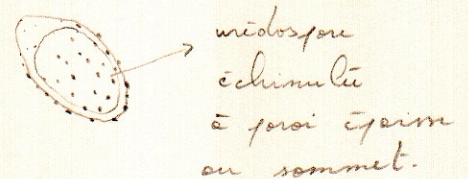 urédospore
échinulée
à paroi épaisse
au sommet.